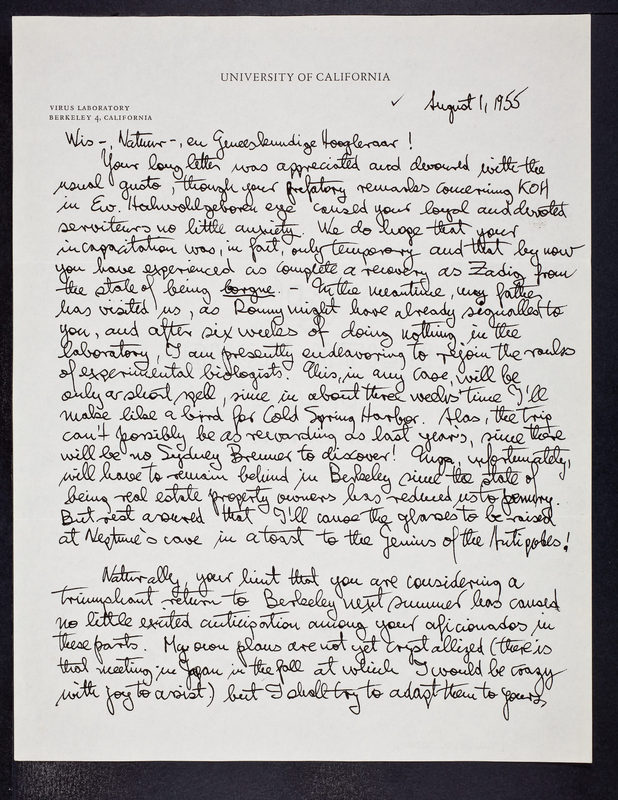 UNIVERSITY OF CALIFORNIA
VIRUS LABORATORY
BERKELEY 4, CALIFORNIA
✓ August 1, 1955
Wis-, Natuur-, en Geneeskundige Hoogleraar!
Your long letter was appreciated and devoured with the
usual gusto, though your prefatory remarks concerning KOH
in Ew. Hochwohlgeboren eye caused your loyal and devoted
serviteurs no little anxiety. We do hope that your
incapacitation was, in fact, only temporary and that by now
you have experienced as complete a recovery as Zadig from
the state of being borgne. - In the meantime, my father
has visited us, as Ronny might have already signalled to
you, and after six weeks of doing nothing in the
laboratory, I am presently endeavoring to rejoin the ranks
of experimental biologists. This, in any case, will be
only a short spell, since in about three weeks' time I'll
make like a bird for Cold Spring Harbor. Alas, the trip
can't possibly be as rewarding as last year's, since there
will be no Sydney Brenner to discover! Inga, unfortunately,
will have to remain behind in Berkeley since the state of
being real estate property owners has reduced us to penury.
But rest assured that I'll cause the glasses to be raised
at Neptune's cave in a toast to the Genius of the Antipodes!
Naturally, your hint that you are considering a
triumphant return to Berkeley next summer has caused
no little excited anticipation among your aficionados in
these parts. My own plans are not yet crystallized (there is
that meeting in Japan in the fall at which I would be crazy
with joy to assist) but I shall try to adapt them to yours,